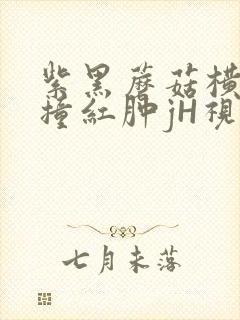 紫黑蘑菇横
撞红肿jH视
七月未落